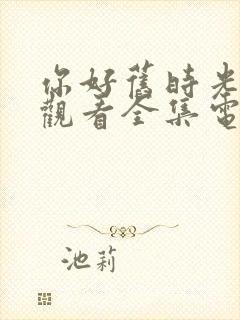 你好舊時光
觀看全集電
池莉